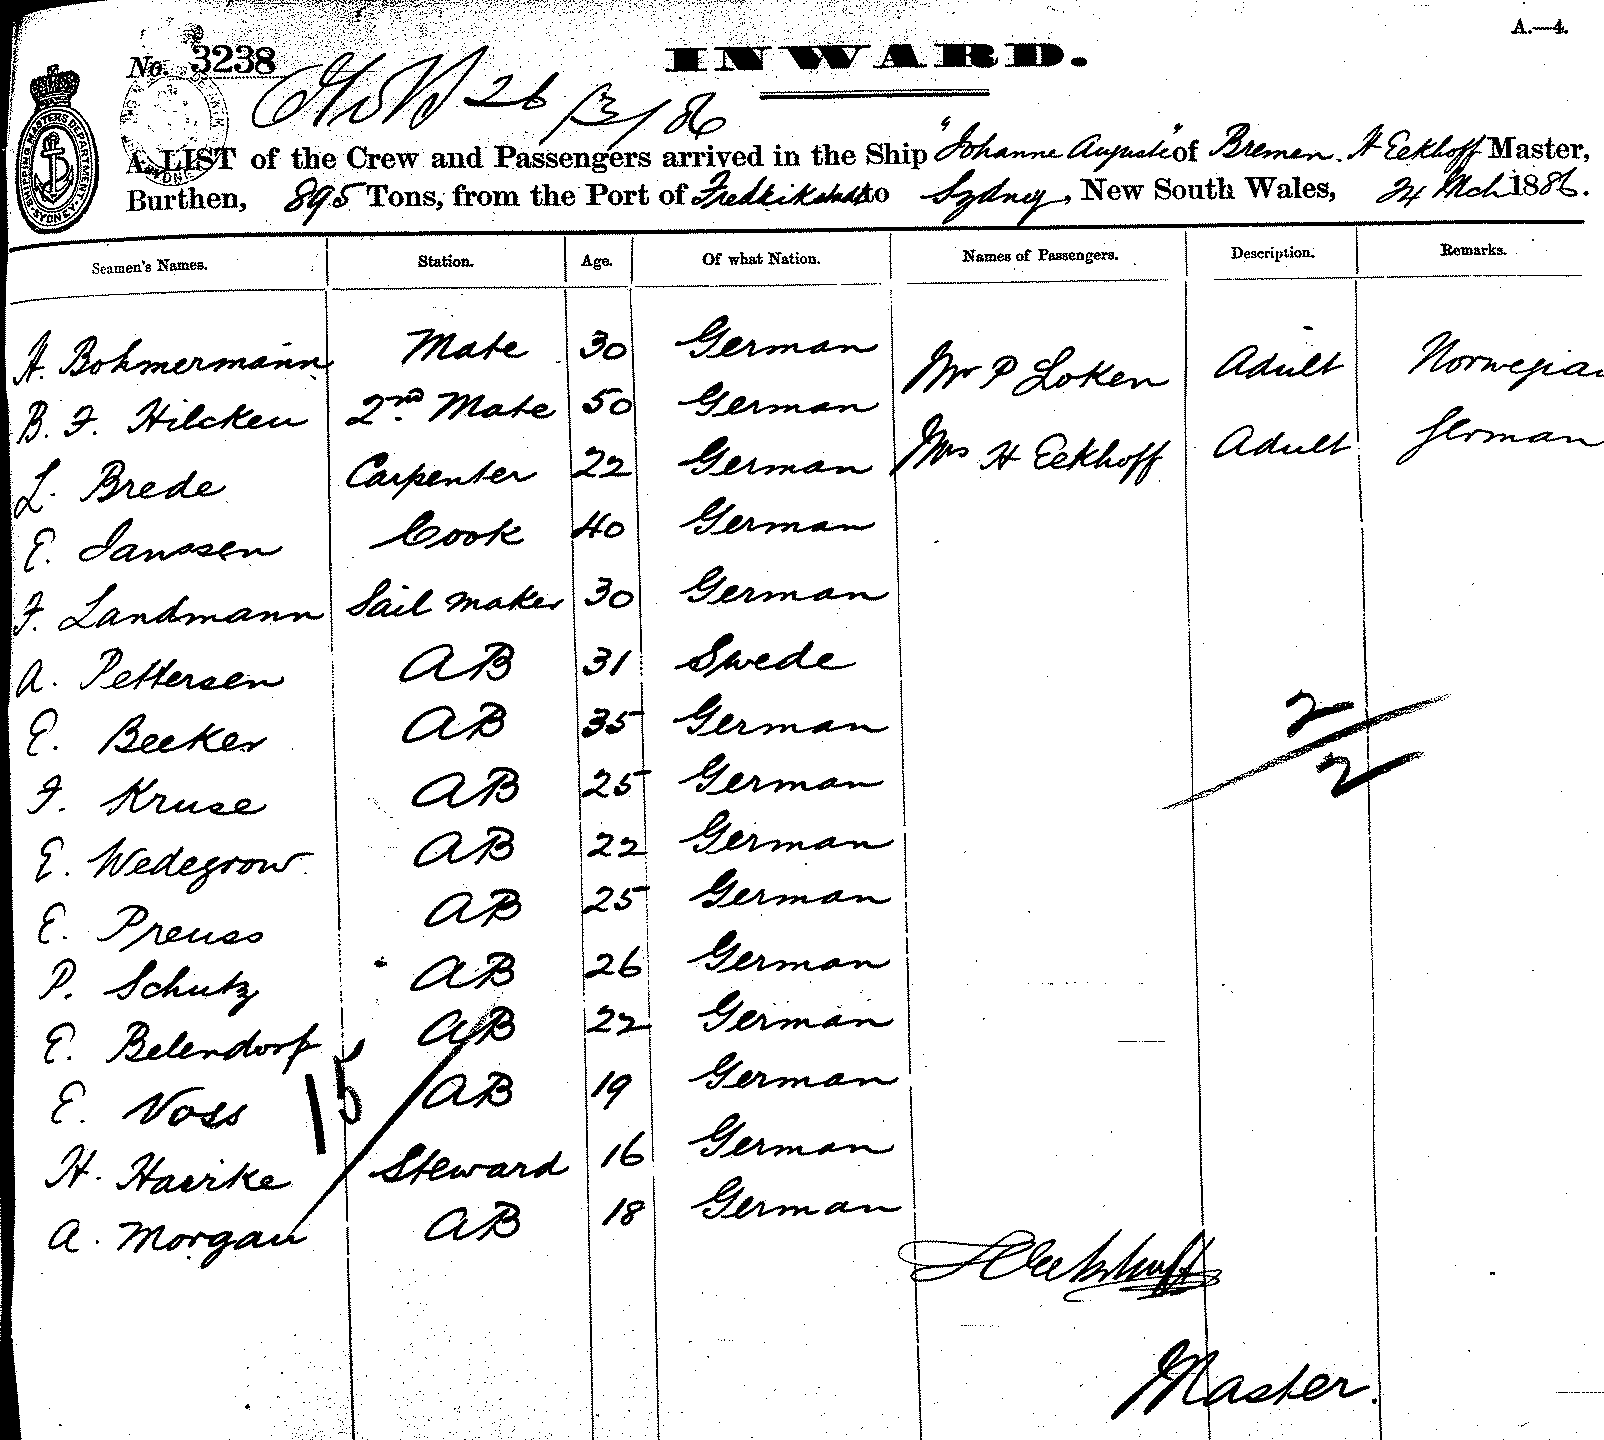 A.—4.
No. 3238
INWARD.
26/3/86
SHIPPING MASTERS DEPARTMENT SYDNEY
A LIST of the Crew and Passengers arrived in the Ship "Johanne Auguste" of Bremen. H Eekhoff Master,
Burthen, 895 Tons, from the Port of Fredrikstadt to Sydney, New South Wales, 24 Mch 1886.
Seamen's Names. Station. Age. Of what Nation. Names of Passengers. Description. Remarks.
H. Bohmermann Mate 30 German Mr P Loken Adult Norwegian
B. F. Hilcken 2nd Mate 50 German Mrs H Eekhoff Adult German
L. Brede Carpenter 22 German
E. Janssen Cook 40 German
F. Landmann Sail maker 30 German
A. Pettersen AB 31 Swede
E. Becker AB 35 German
F. Kruse AB 25 German
E. Wedegrow AB 22 German
E. Preuss AB 25 German
P. Schutz AB 26 German
E. Belendorf AB 22 German
E. Voss AB 19 German
H. Haerke Steward 16 German
A. Morgan AB 18 German
15
2/2
H Eekhoff
Master.